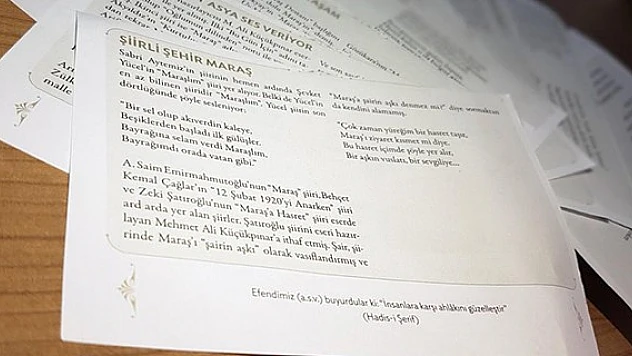 ASYA SES VERİYOR
ŞİİRLİ ŞEHİR MARAŞ
Sabri Aytemiz'in şiirinin hemen ardında Şevket
Yücel'in "Maraşlım" şiiri yer alıyor. Belki de Yücel'in
en az bilinen şiiridir "Maraşlım". Yücel şiirin son
dörtlüğünde şöyle sesleniyor:
"Bir sel olup akıverdin kaleye,
Beşiklerden başladı ilk gülüşler.
Bayrağına selam verdi Maraşlım,
Bayrağımdı orada vatan gibi."
A. Saim Emirmahmutoğlu'nun "Maraş" şiiri, Behçet
Kemal Çağlar'ın "12 Şubat 1920'yi Anarken" şiiri
ve Zeki Şatıroğlu'nun "Maraş'a Hasret" şiiri eserde
ard arda yer alan şiirler. Şatıroğlu şiirini eseri hazır-
layan Mehmet Ali Küçükpınar'a ithaf etmiş. Şair, şii-
rinde Maraş'ı "şairin aşkı" olarak vasıflandırmış ve
"Maraş'a şairin aşkı denmez mi?" diye sormaktan
da kendini alamamış.
"Çok zaman yüreğim bir hasret taşır,
Maraş'ı ziyaret kısmet mi diye.
Bu hasret içimde şöyle yer alır,
Bir aşkın vuslatı, bir sevgiliye...
Efendimiz (a.s.v.) buyurdular ki: "İnsanlara karşı ahlâkını güzelleştir"
(Hadis-i Şerif)